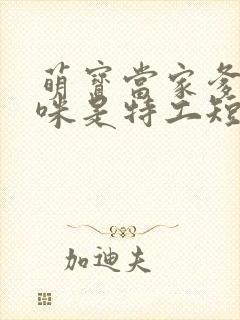 萌寶當家爹
咪是特工短
加迪夫